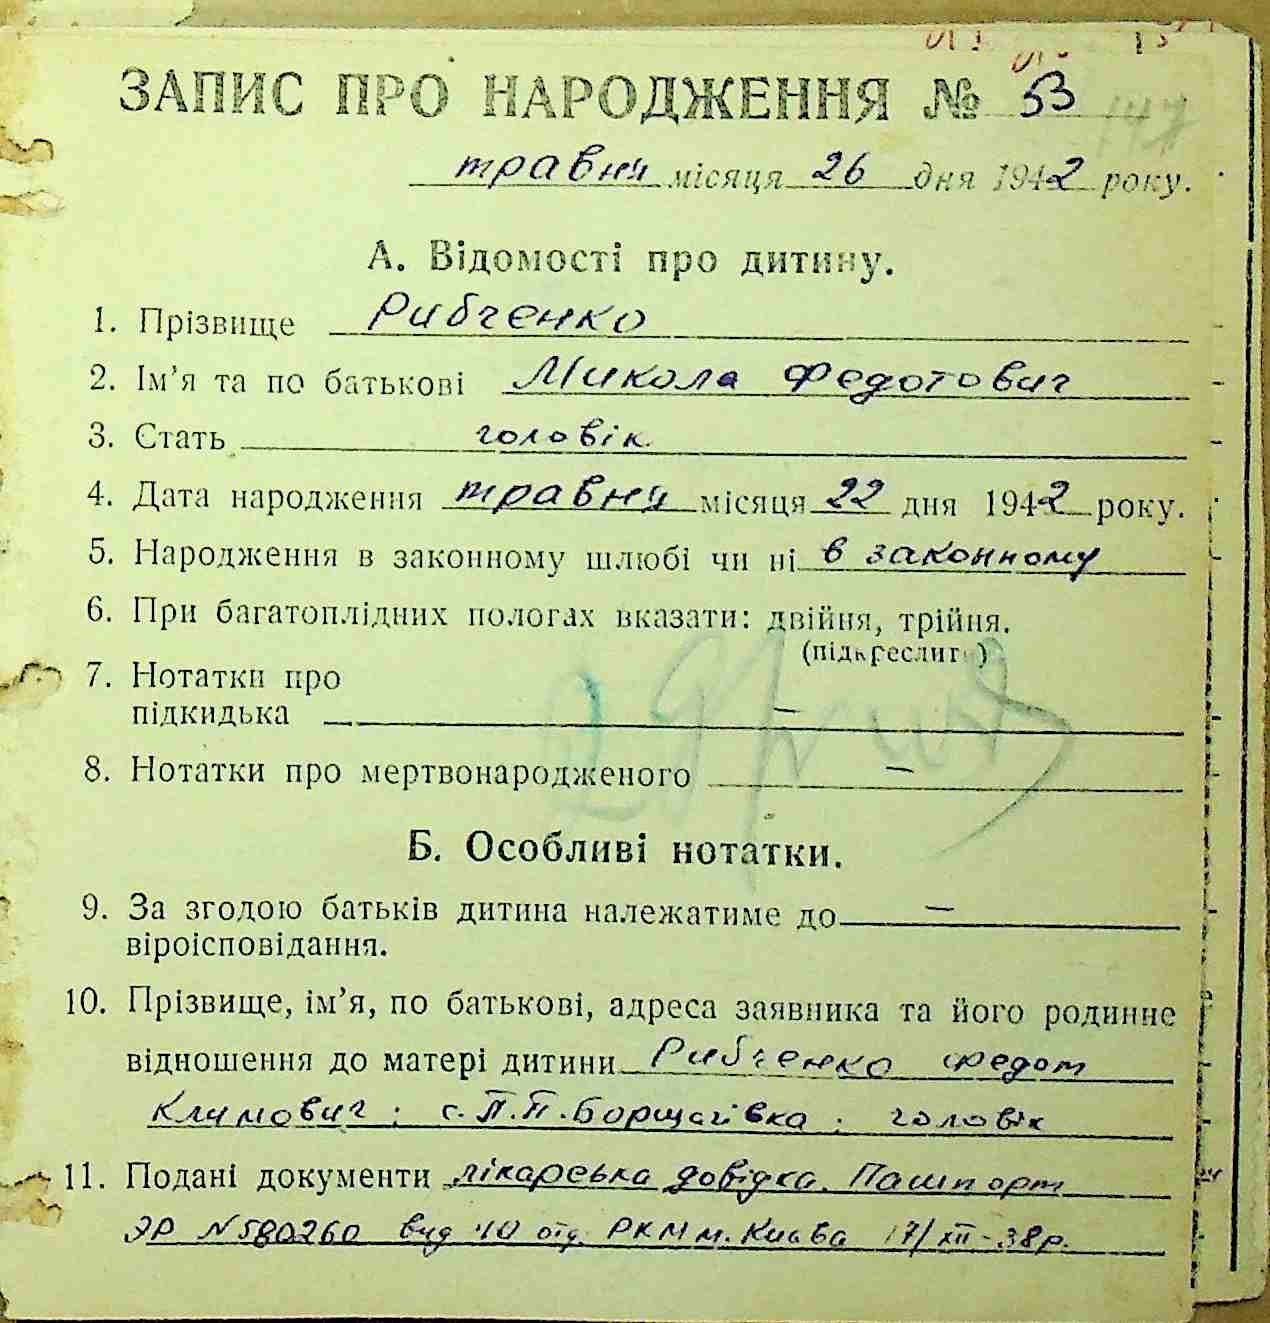 ЗАПИС ПРО НАРОДЖЕННЯ № 53
147
травня місяця 26 дня 1942 року.
А. Відомості про дитину.
1. Прізвище Рибченко
2. Ім'я та по батькові Микола Федотович
3. Стать чоловік.
4. Дата народження травня місяця 22 дня 1942 року.
5. Народження в законному шлюбі чи ні в законному
6. При багатоплідних пологах вказати: двійня, трійня.
(підкреслити)
7. Нотатки про
підкидька –
8. Нотатки про мертвонародженого –
Б. Особливі нотатки.
9. За згодою батьків дитина належатиме до –
віроісповідання.
10. Прізвище, ім'я, по батькові, адреса заявника та його родинне
відношення до матері дитини Рибченко Федот
Климович; с. П.П. Борщагівка; чоловік
11. Подані документи лікарська довідка. Пашпорт
ЭР № 580260 вид 10 отд. РКМ м. Києва 17/XII-38р.